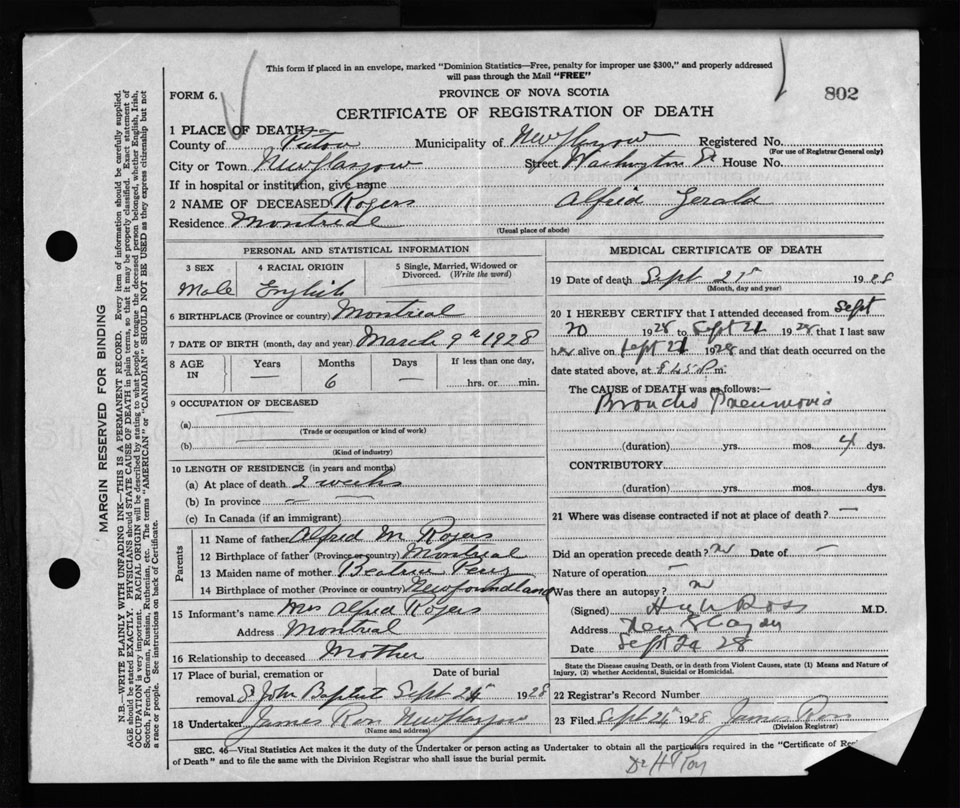 This form if placed in an envelope, marked "Dominion Statistics—Free, penalty for improper use $300," and properly addressed
will pass through the Mail "FREE"
FORM 6.
PROVINCE OF NOVA SCOTIA
802
CERTIFICATE OF REGISTRATION OF DEATH
1 PLACE OF DEATH—
County of Pictou Municipality of New Glasgow Registered No.
(For use of Registrar General only)
City or Town New Glasgow Street Washington St House No.
If in hospital or institution, give name
2 NAME OF DECEASED Rogers Alfrid Gerald
Residence Montreal
(Usual place of abode)
PERSONAL AND STATISTICAL INFORMATION
3 SEX 4 RACIAL ORIGIN 5 Single, Married, Widowed or
Divorced. (Write the word)
Male English
6 BIRTHPLACE (Province or country) Montreal
7 DATE OF BIRTH (month, day and year) March 9th 1928
8 AGE Years Months Days If less than one day,
IN — 6 — hrs. or min.
9 OCCUPATION OF DECEASED
(a)
(Trade or occupation or kind of work)
(b)
(Kind of industry)
10 LENGTH OF RESIDENCE (in years and months)
(a) At place of death 2 weeks
(b) In province — —
(c) In Canada (if an immigrant)
Parents
11 Name of father Alfred M Rogers
12 Birthplace of father (Province or country) Montreal
13 Maiden name of mother Beatrice
14 Birthplace of mother (Province or country) Newfoundland
15 Informant's name Mrs Alfred Rogers
Address Montreal
16 Relationship to deceased Mother
17 Place of burial, cremation or Date of burial
removal St John Baptist Sept 24th 1928
18 Undertaker James Ross New Glasgow
(Name and address)
MEDICAL CERTIFICATE OF DEATH
19 Date of death Sept 1928
(Month, day and year)
20 I HEREBY CERTIFY that I attended deceased from Sept
20 1928 to Sept 21 1928 that I last saw
h alive on Sept 21 1928 and that death occurred on
the date stated above, at m.
The CAUSE of DEATH was as follows:—
Broncho Pneumonia
(duration) yrs. mos. 4 dys.
CONTRIBUTORY
(duration) yrs. mos. dys.
21 Where was disease contracted if not at place of death? —
Did an operation precede death? no Date of —
Nature of operation —
Was there an autopsy? no
(Signed) Hugh Ross M.D.
Address New Glasgow
Date Sept 28
State the Disease causing Death, or in death from Violent Causes, state (1) Means and Nature of
Injury, (2) whether Accidental, Suicidal or Homicidal.
22 Registrar's Record Number
23 Filed Sept 24th 1928 James Ross
(Division Registrar)
SEC. 46—Vital Statistics Act makes it the duty of the Undertaker or person acting as Undertaker to obtain all the particulars required in the "Certificate of
of Death" and to file the same with the Division Registrar who shall issue the burial permit.
MARGIN RESERVED FOR BINDING
N.B.—WRITE PLAINLY WITH UNFADING INK—THIS IS A PERMANENT RECORD. Every item of information should be carefully supplied.
AGE should be stated EXACTLY. PHYSICIANS should STATE CAUSE OF DEATH in plain terms, so that it may be properly classified. Exact statement of
OCCUPATION is very important. RACIAL ORIGIN will be described by stating to what people or tongue the deceased person belonged, whether English, Irish,
Scotch, French, German, Russian, Ruthenian, etc. The terms "AMERICAN" or "CANADIAN" SHOULD NOT BE USED as they express citizenship but not
a race or people. See instructions on back of Certificate.